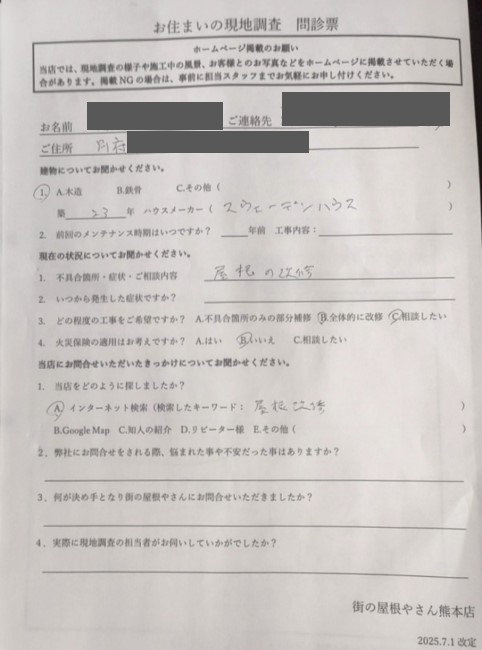 お住まいの現地調査 問診票
ホームページ掲載のお願い
当店では、現地調査の様子や施工中の風景、お客様とのお写真などをホームページに掲載させていただく場
合があります。掲載NGの場合は、事前に担当スタッフまでお気軽にお申し付けください。
お名前 ご連絡先
ご住所 別府
建物についてお聞かせください。
1. A.木造 B.鉄骨 C.その他 ( )
築 23 年 ハウスメーカー ( スウェーデンハウス )
2. 前回のメンテナンス時期はいつですか? 年前 工事内容:
現在の状況についてお聞かせください。
1. 不具合箇所・症状・ご相談内容 屋根の改修
2. いつから発生した症状ですか?
3. どの程度の工事をご希望ですか? A.不具合箇所のみの部分補修 B.全体的に改修 C.相談したい
4. 火災保険の適用はお考えですか? A.はい B.いいえ C.相談したい
当店にお問合せいただいたきっかけについてお聞かせください。
1. 当店をどのように探しましたか?
A. インターネット検索 (検索したキーワード: 屋根改修 )
B.Google Map C.知人の紹介 D.リピーター様 E.その他 ( )
2. 弊社にお問合せをされる際、悩まれた事や不安だった事はありますか?
3. 何が決め手となり街の屋根やさんにお問合せいただきましたか?
4. 実際に現地調査の担当者がお伺いしていかがでしたか?
街の屋根やさん熊本店
2025.7.1 改定